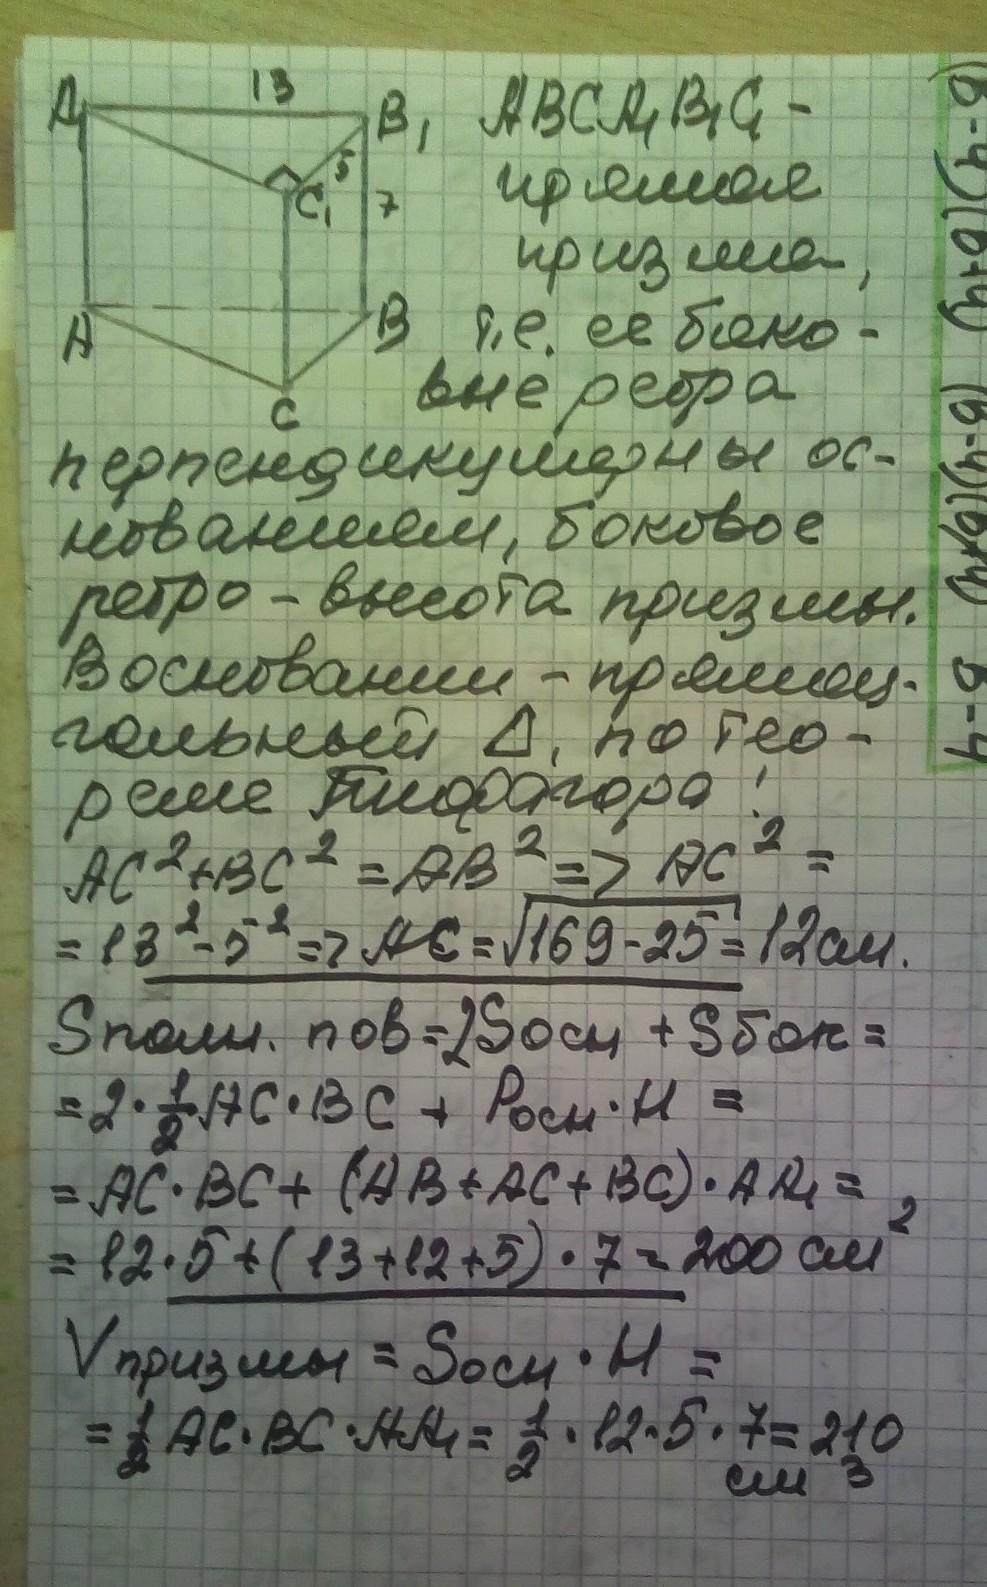 13
A₁ B₁ ABCA₁B₁C₁ -
5
C₁ 7 прямая
призма,
A B т.е. ее боко-
вые ребра
C
перпендикулярны ос-
нованиям, боковое
ребро - высота призмы.
В основании - прямоу-
гольный Δ, по тео-
реме Пифагора:
AC² + BC² = AB² => AC² =
= 13² - 5² => AC = √169-25 = 12 см.
Sполн. пов = 2Sосн + Sбок =
= 2 · 1/2 AC · BC + Pосн · H =
= AC · BC + (AB + AC + BC) · AA₁ =
= 12 · 5 + (13 + 12 + 5) · 7 = 200 см²
Vпризмы = Sосн · H =
= 1/2 AC · BC · AA₁ = 1/2 · 12 · 5 · 7 = 210
см³